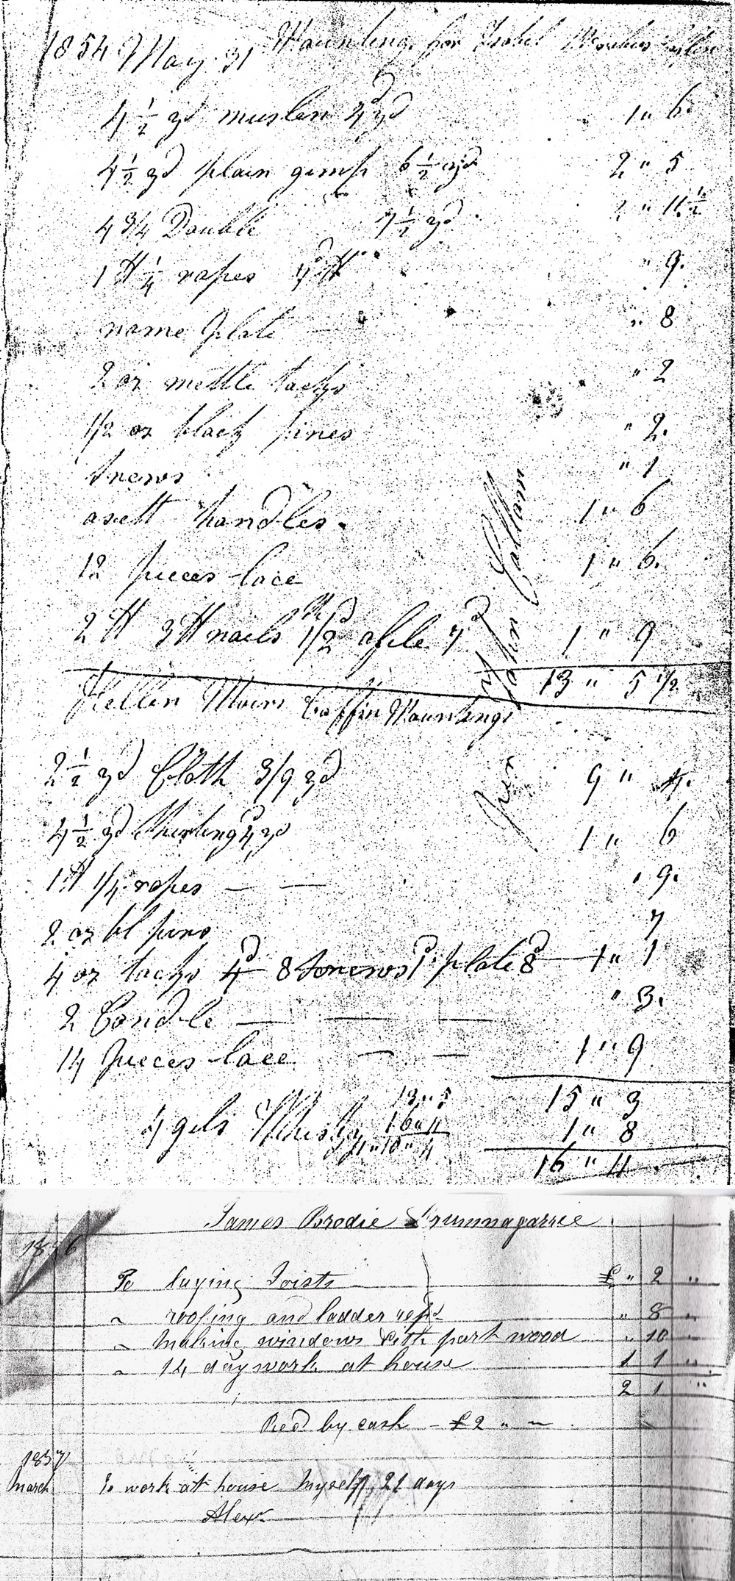 1854 May 31 Mounting for Isabel
4 1/2 yd muslen 4d yd 1 " 6
4 1/2 yd plain gimp 6 1/2 yd 2 " 5
4 3/4 Double 7 1/2 yd 2 " 11 1/2
1 lb 1/4 ropes " 9
name plate " 8
2 oz mettle tacks " 2
1/2 oz black pines " 2
Screws " 1
asett handles 1 " 6
12 pieces lace 1 " 6
2 lb 3 lb nails 1/2d afile 7d 1 " 9
13 " 5 1/2
Hellen Moirs Coffin Mountings
2 1/2 yd Cloth 3/9 yd 9 " 4
4 1/2 yd Shirting 4d yd 1 " 6
1 lb 1/4 ropes — — " 9
2 oz bl pins 7
4 oz tacks 4d 8 Screws 1d plate 8d 1 " 1
2 Candle — — — " 3
14 pieces lace — — 1 " 9
15 " 3
4 gels Whisky 1 " 8
13 " 5
16 " 11
16 " 11
per John
James Brodie Drumnagarrie
1856
To laying Joists £ " 2 "
" roofing and ladder " 8 "
" making windows with part wood " 10 "
" 14 day work at house 1 1 "
2 1 "
Recd by cash — £2 " —
1857
March To work at house Myself 21 days
Alexr